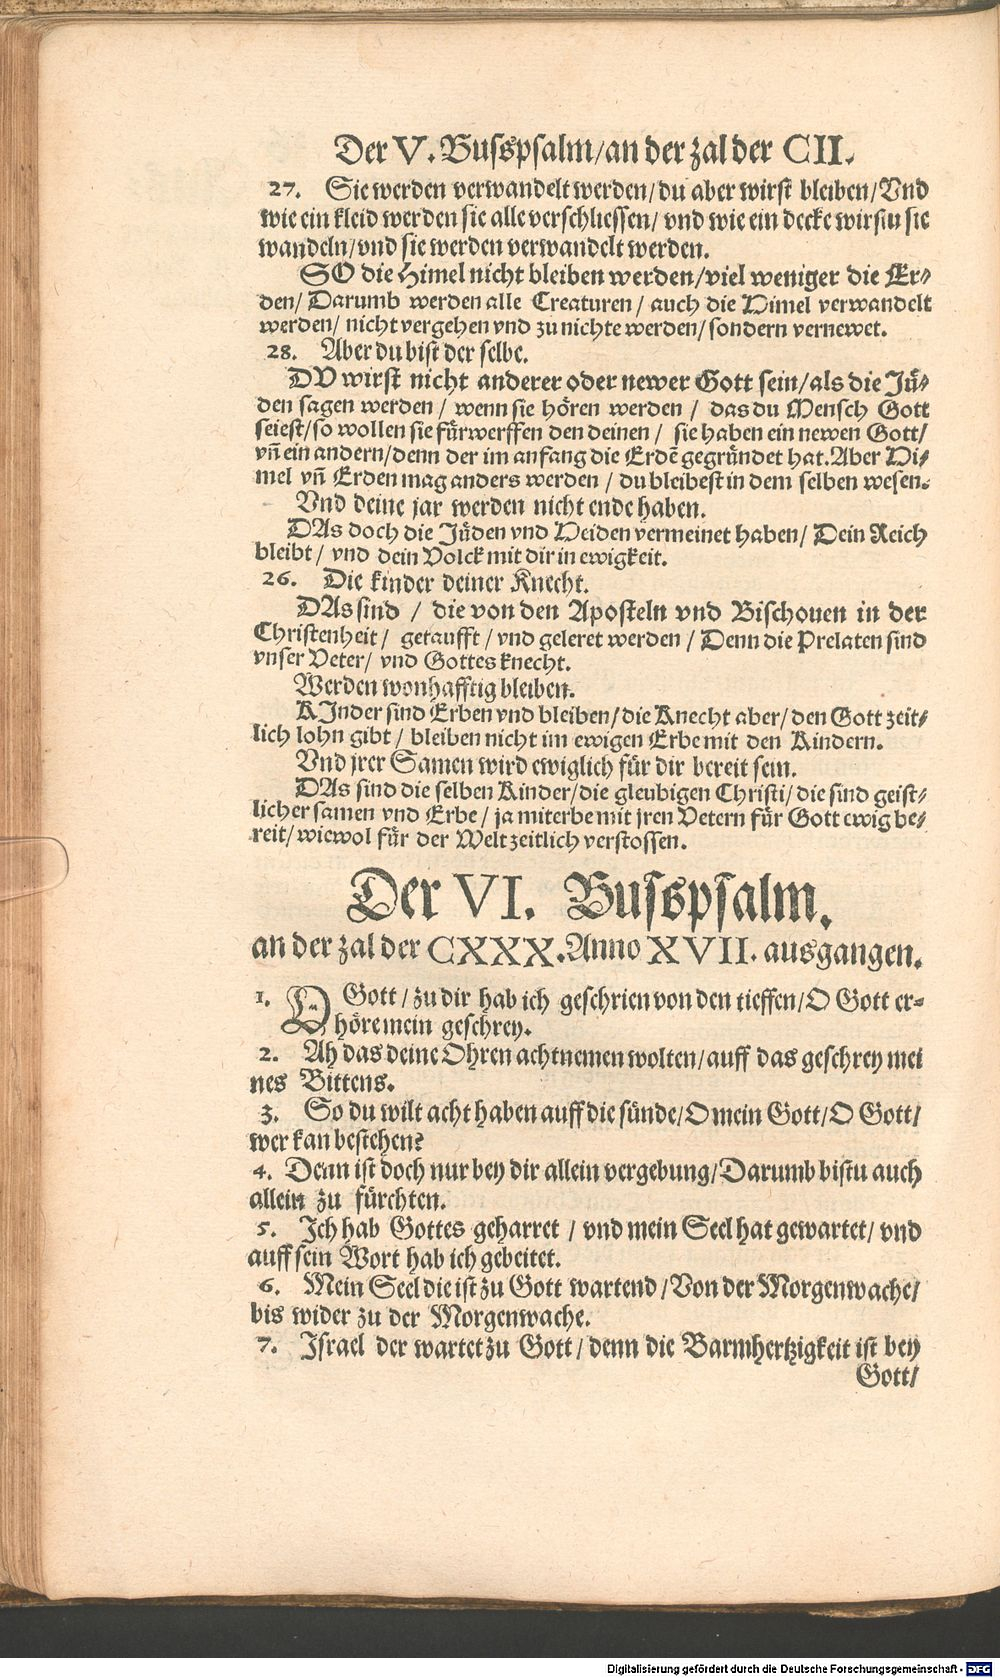 Der V. Busspsalm/an der zal der CII.
27. Sie werden verwandelt werden/du aber wirst bleiben/Vnd
wie ein kleid werden sie alle verschliessen/ vnd wie ein decke wirstu sie
wandeln/vnd sie werden verwandelt werden.
SO die Himel nicht bleiben werden/viel weniger die Er-
den/ Darumb werden alle Creaturen / auch die Himel verwandelt
werden/ nicht vergehen vnd zu nichte werden/sondern vernewet.
28. Aber du bist der selbe.
DV wirst nicht anderer oder newer Gott sein/als die Jü-
den sagen werden / wenn sie hören werden / das du Mensch Gott
seiest/so wollen sie fürwerffen den deinen / sie haben ein newen Gott/
vñ ein andern/denn der im anfang die Erdē gegründet hat. Aber Hi-
mel vñ Erden mag anders werden / du bleibest in dem selben wesen.
Vnd deine jar werden nicht ende haben.
DAs doch die Jüden vnd Heiden vermeinet haben/ Dein Reich
bleibt / vnd dein Volck mit dir in ewigkeit.
26. Die kinder deiner Knecht.
DAs sind / die von den Aposteln vnd Bischouen in der
Christenheit / getaufft / vnd geleret werden / Denn die Prelaten sind
vnser Veter/ vnd Gottes knecht.
Werden wonhafftig bleiben.
KInder sind Erben vnd bleiben/die Knecht aber/den Gott zeit-
lich lohn gibt / bleiben nicht im ewigen Erbe mit den Kindern.
Vnd jrer Samen wird ewiglich für dir bereit sein.
DAs sind die selben Kinder/die gleubigen Christi/die sind geist-
licher samen vnd Erbe / ja miterbe mit jren Vetern für Gott ewig be-
reit/wiewol für der Welt zeitlich verstossen.
Der VI. Busspsalm,
an der zal der CXXX. Anno XVII. ausgangen.
1. O Gott / zu dir hab ich geschrien von den tieffen/O Gott er-
höre mein geschrey.
2. Ah das deine Ohren acht nemen wolten/auff das geschrey mei
nes Bittens.
3. So du wilt acht haben auff die sünde/O mein Gott/O Gott/
wer kan bestehen?
4. Denn ist doch nur bey dir allein vergebung/Darumb bistu auch
allein zu fürchten.
5. Ich hab Gottes geharret / vnd mein Seel hat gewartet/ vnd
auff sein Wort hab ich gebeitet.
6. Mein Seel die ist zu Gott wartend /Von der Morgenwache/
bis wider zu der Morgenwache.
7. Israel der wartet zu Gott / denn die Barmhertzigkeit ist bey
Gott/
Digitalisierung gefördert durch die Deutsche Forschungsgemeinschaft - DFG